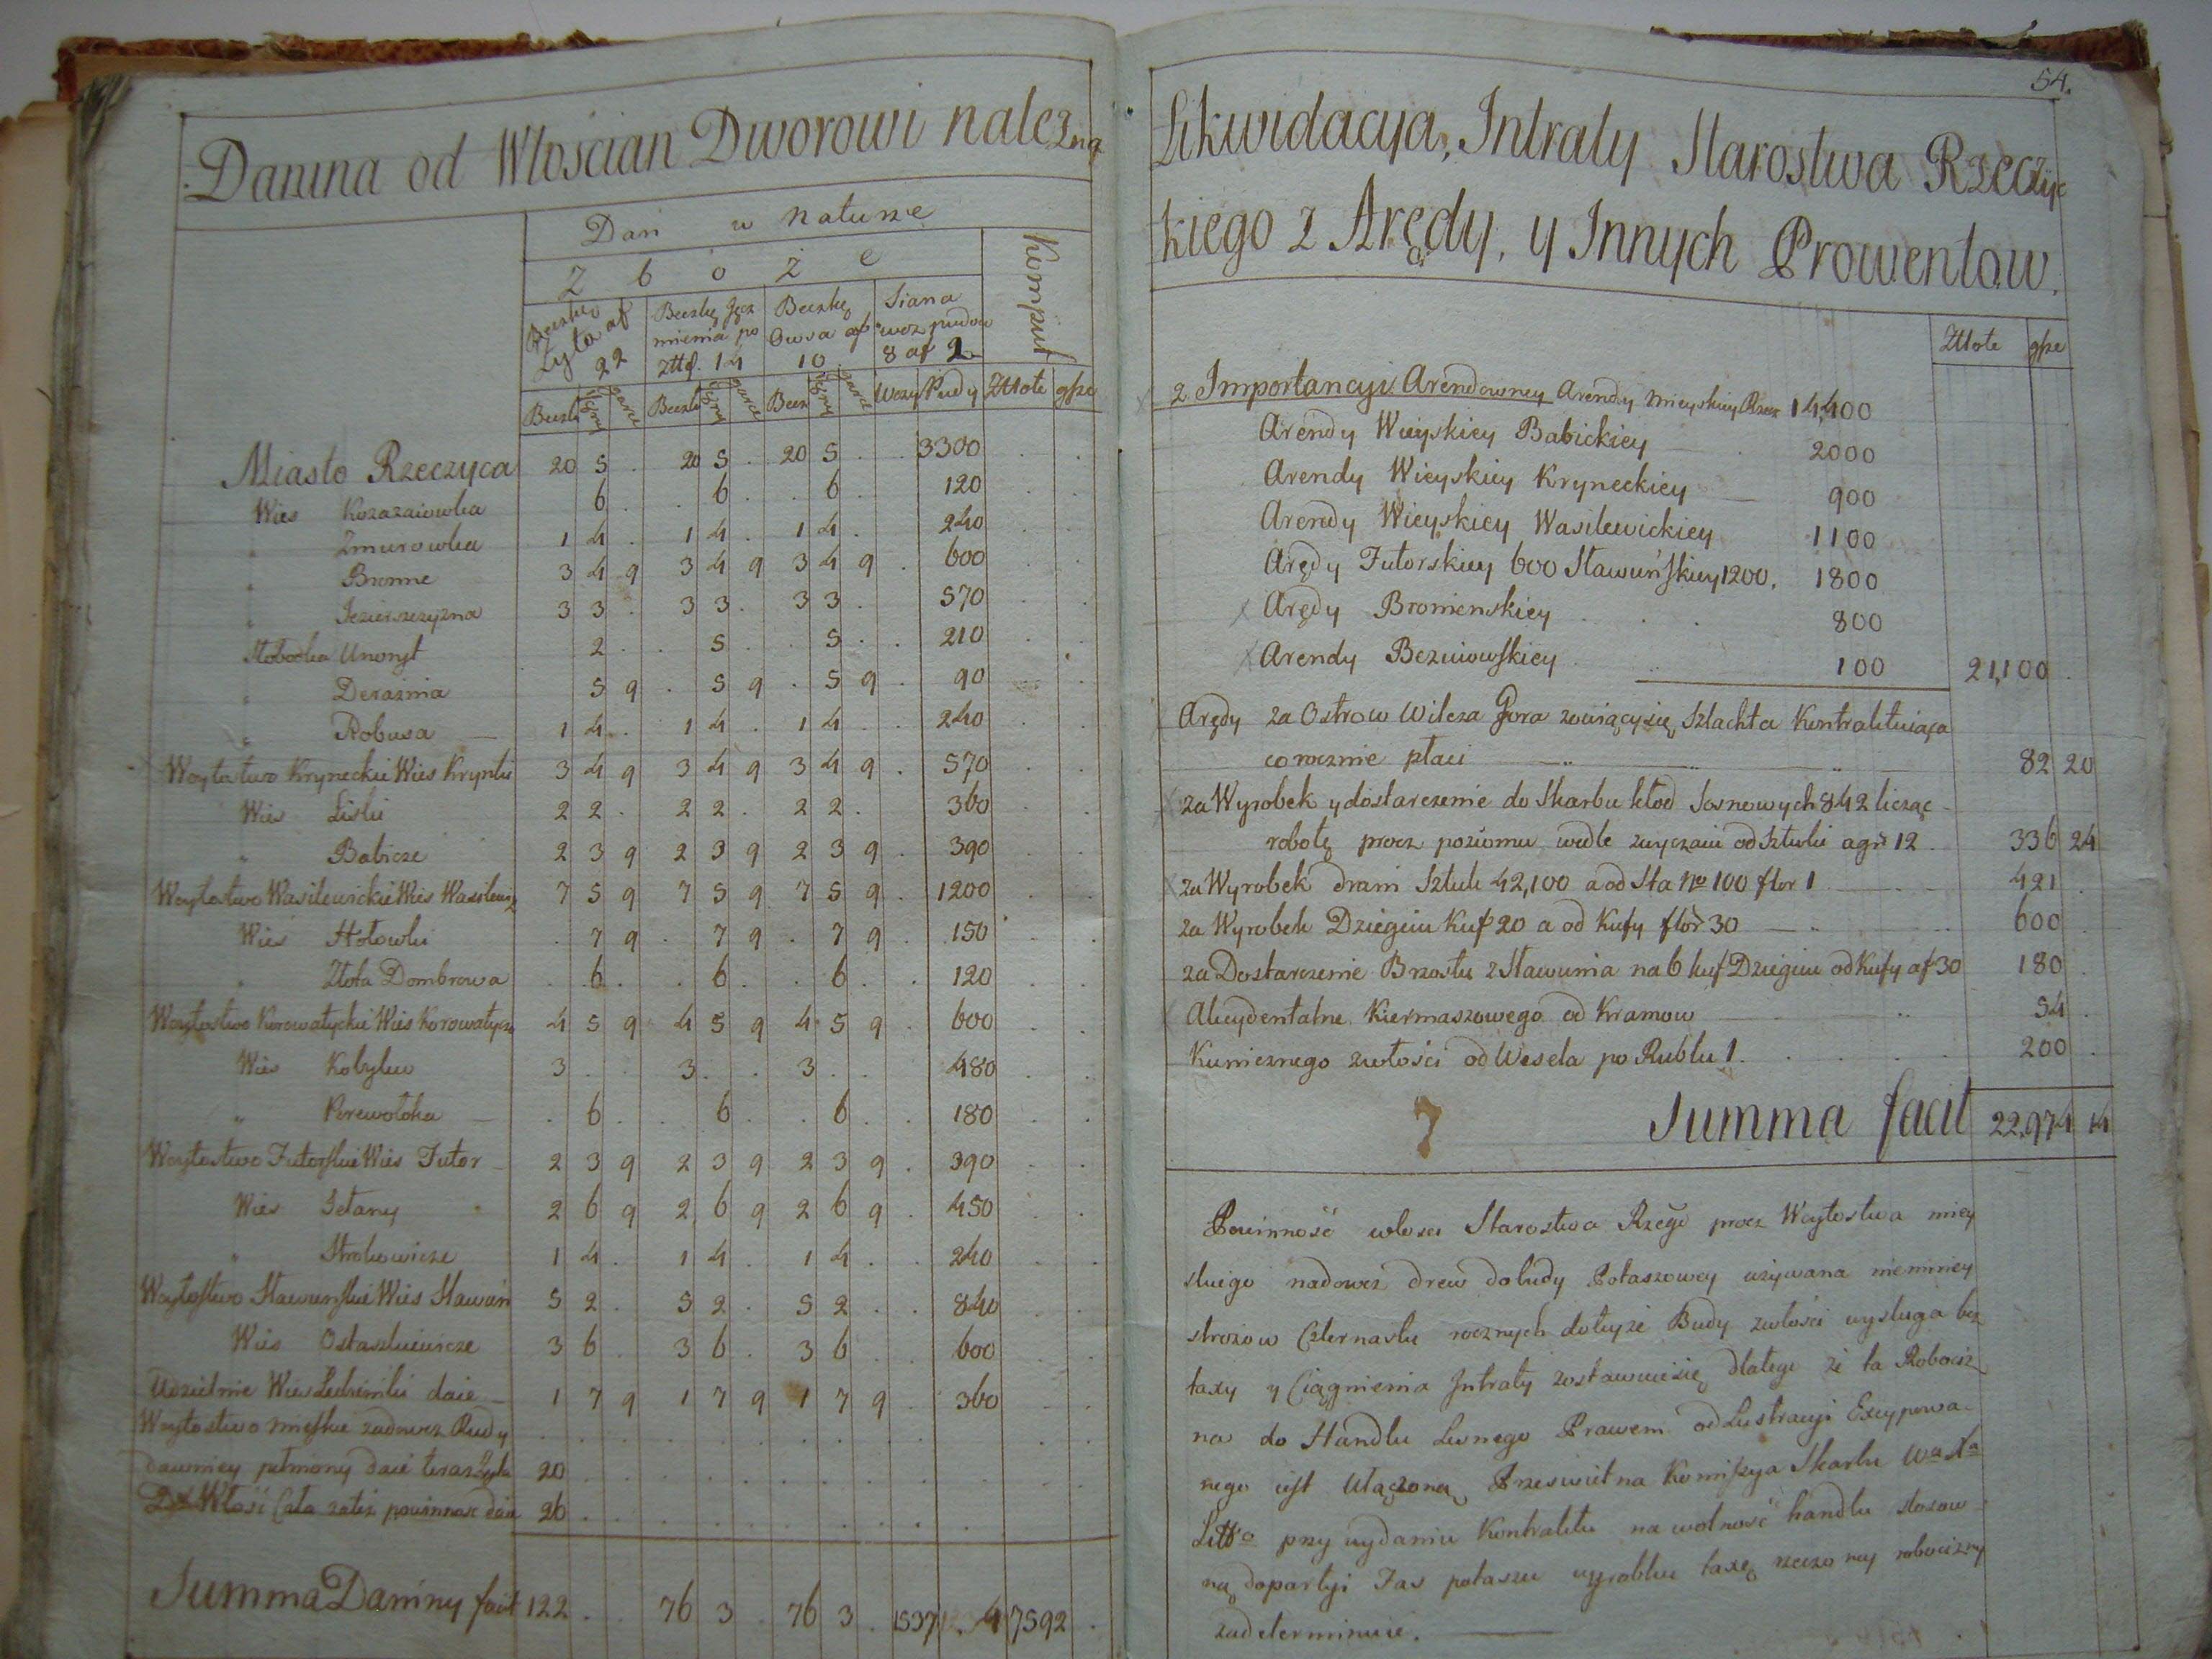 Danina od Włoscian Dworowi należna
Dan w naturze
Z b o ż e
Kompút
Beczkę Żyta af 22
Beczkę Jęczmienia po zttf. 14
Beczkę Owsa af 10
Siana woz pudow 8 af 2
Beczki garce Beczki garce Becz garce Wozy Pudy Złłote gsze
Miasto Rzeczyca 20 5 . 20 5 . 20 5 . . 3300
Wies 6 . . 6 . . 6 . 120
" Zmurowka 1 4 . 1 4 . 1 4 . 240
" Bronne 3 4 9 3 4 9 3 4 9 . 600
" Jezierszczyzna 3 3 . 3 3 . 3 3 . 570
Słobodka Unoryt 2 . . 5 . . 5 . . 210
" Deraznia 5 9 . 5 9 . 5 9 . 90
" Robusa 1 4 . 1 4 . 1 4 . . 240
Woytostwo Kryneckie Wies Krynki 3 4 9 3 4 9 3 4 9 . 570
Wies Liski 2 2 . 2 2 . 2 2 . 360
" Babicze 2 3 9 2 3 9 2 3 9 . 390
Woytostwo Wasilewickie Wies Wasilewicz 7 5 9 7 5 9 7 5 9 . 1200
Wies Hołowki . 7 9 . 7 9 . 7 9 . 150
" Złota Dombrowa . 6 . . 6 . . 6 . . 120
Woytostwo Korowatyckie Wies Korowatycze 4 5 9 4 5 9 4 5 9 . 600
Wies Kobylew 3 . . 3 . . 3 . . 480
" Perewołoka . 6 . . 6 . . 6 . . 180
Woytostwo Futorskie Wies Futor 2 3 9 2 3 9 2 3 9 . 390
Wies 2 6 9 2 6 9 2 6 9 . 450
" Strokowicze 1 4 . 1 4 . 1 4 . . 240
Woytostwo Sławunskie Wies Sławuń 5 2 . 5 2 . 5 2 . . 840
Wies Ostaszkiewicze 3 6 . 3 6 . 3 6 . . 600
Udzielnie Wies daie 1 7 9 1 7 9 1 7 9 . 360
Woytostwo mieyskie zadowoz Rudy
dawniey daie teraz Żyta 20
Włość Cała zatęż powinnosc daie 26
Summa Daniny facit 122 . . 76 3 . 76 3 . 1537 4 7592
54.
Likwidacyja, Intraty Starostwa Rzeczyc
kiego z Arędy, y Innych Prowentow.
Złłote gsze
z Importancyi Arendowney Arendy mieyskiey Rzecz 14,400
Arendy Wieyskiey Babickiey 2000
Arendy Wieyskiey Kryneckiey 900
Arendy Wieyskiey Wasilewickiey 1100
Arędy Futorskiey 600 Sławuńskiey 1200. 1800
Arędy Bronienskiey 800
Arendy Bezuiowskiey 100 21,100
Arędy za Ostrow Wilcza Gora zowiący się Szlachta Kontraktuiąca
corocznie płaci 82 20
za Wyrobek y dostarczenie do Skarbu kłod Sosnowych 842 licząc
robotę procz poziomu wedle zwyczaiu od Sztuki agr 12 336 24
za Wyrobek drani Sztuk 42,100 a od Sta No 100 flor 1 421
za Wyrobek Dziegciu Kuf 20 a od Kufy flor 30 600
za Dostarczenie Brzostu z Sławunia na 6 kuf Dziegciu od Kufy af 30 180
Akcydentalne Kiermaszowego od Kramow 54
Kunicznego zwłości od Wesela po Rublu 1 200
7 Summa facit 22,974 14
Powinność włosci Starostwa Rzego procz Woytostwa miey
skiego nadowoz drew dobudy Potaszowey używana niemniey
strożow Czternastu rocznych dotyże Budy zwłości wysługa bez
taxy y Ciągnienia Intraty zostawuie się, dlatego że ta Robocizna
na do Handlu Lesnego Prawem od Lustracyi Excypowa
nego iest Włączona, Prześwietna Kommissya Skarbu Wo Xa
Litto przy wydaniu Kontraktu na wolność handlu stosow
ną do partyi Fas potaszu wyrobku taxę rzeczoney robocizny
zadeterminuie.